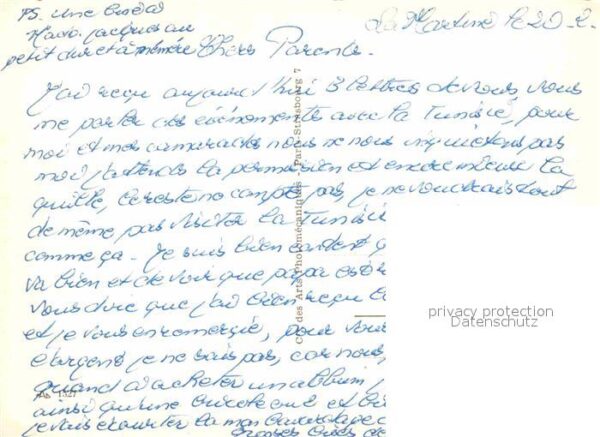 PS. Une
petit direct à même
La Martine le 20-2-
Chers Parents.
J'ai reçu aujourd'hui 3 lettres de vous vous
me parler des événements avec la Tunisie, pour
moi et mes camarades nous ne nous inquiétons pas
moi j'attends la permission et encore mieux la
quille, le reste ne compte pas, je ne voudrais tout
de même pas visiter la Tunisie
comme ça. Je suis bien content
va bien et de voir que papa est
vous dire que j'ai bien reçu
et je vous en remercie, pour vous
l'argent je ne sais pas, car nous
quand d'acheter un album
ainsi qu'une et
je vais écouter la mon
Grosses bises de
Cie des Arts Photomécaniques - Paris-Strasbourg 7
1327
privacy protection
Datenschutz